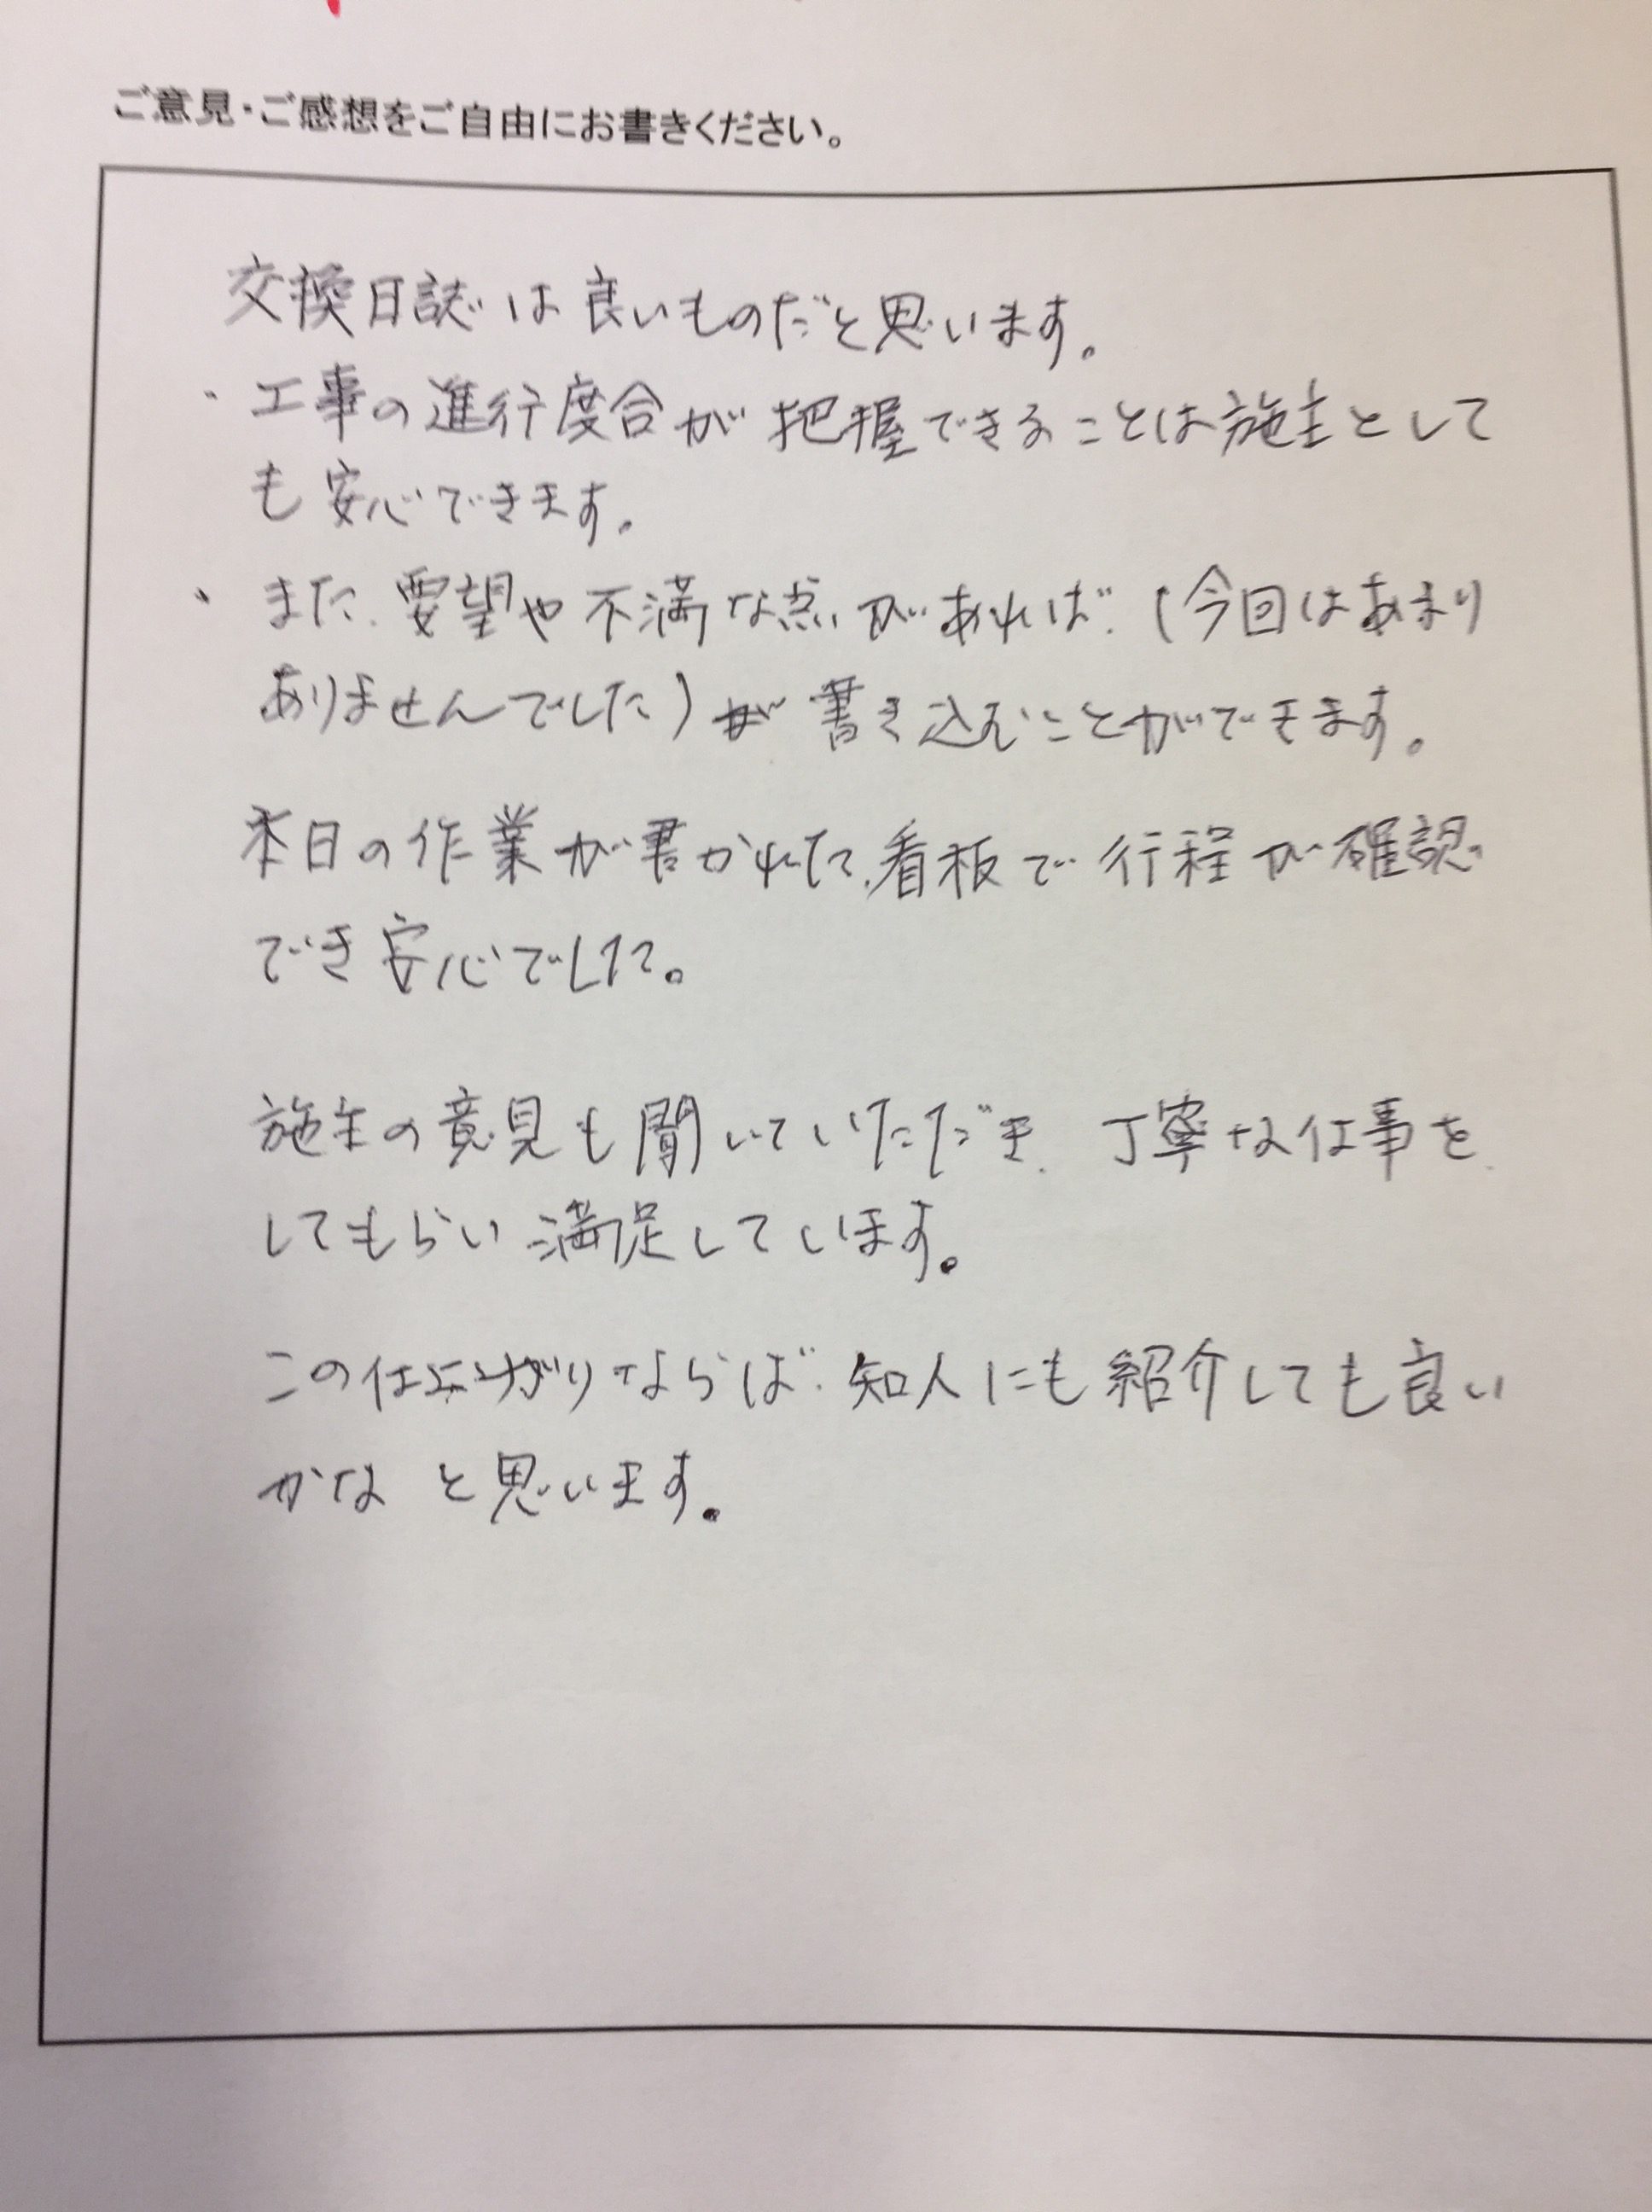 ご意見・ご感想をご自由にお書きください。
交換日誌は良いものだと思います。
・工事の進行度合が把握できることは施主として
も安心できます。
・また、要望や不満な点があれば、(今回はあまり
ありませんでした)が書き込むことができます。
本日の作業が書かれた、看板で行程が確認
でき安心でした。
施主の意見も聞いていただき、丁寧な仕事を
してもらい満足しています。
この仕上がりならば、知人にも紹介しても良い
かな と思います。